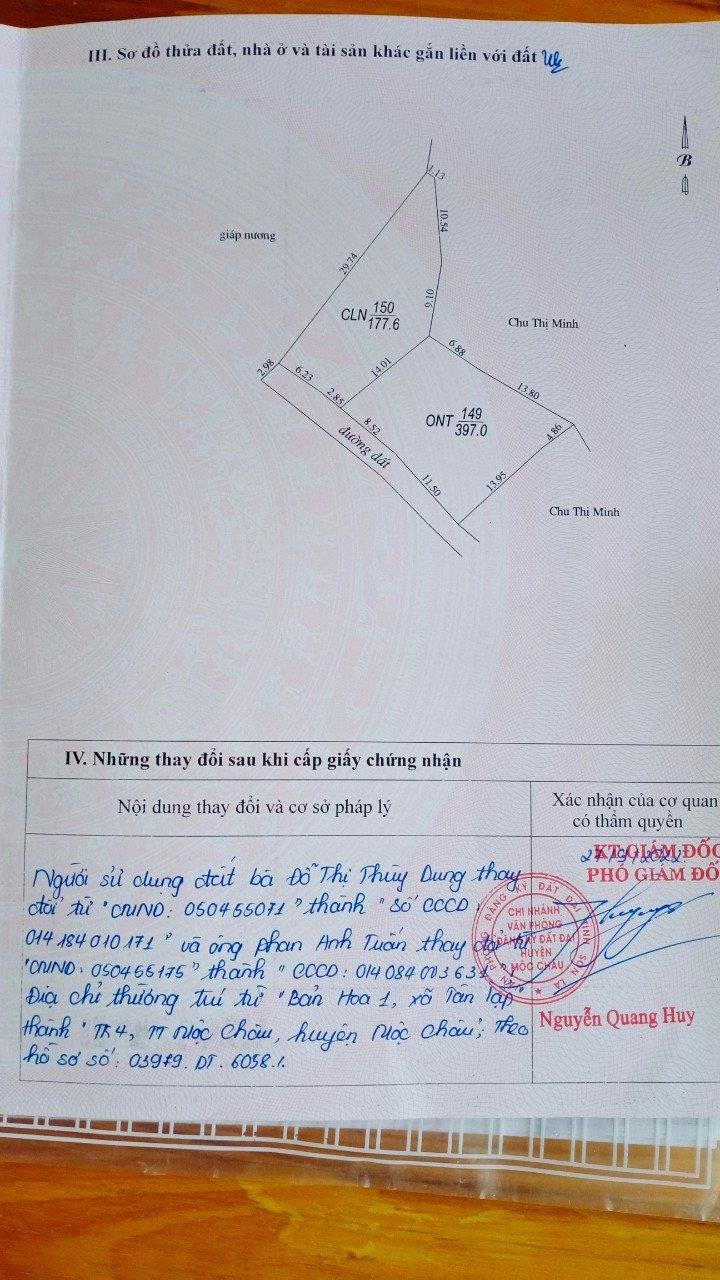 III. Sơ đồ thửa đất, nhà ở và tài sản khác gắn liền với đất
B
1.13
10.54
giáp nương
29.74
9.10
CLN 150
177.6
Chu Thị Minh
6.88
2.98
6.23
14.01
2.85
13.80
8.52
ONT 149
397.0
4.86
đường đất
11.50
13.95
Chu Thị Minh
IV. Những thay đổi sau khi cấp giấy chứng nhận
Nội dung thay đổi và cơ sở pháp lý
Xác nhận của cơ quan
có thẩm quyền
Người sử dụng đất bà Đỗ Thị Thùy Dung thay
đổi từ "CMND: 050455071" thành "Số CCCD:
014184010171" và ông Phan Anh Tuấn thay đổi từ
"CMND: 050455175" thành "CCCD: 014084003631"
Địa chỉ thường trú từ "Bản Hoa 1, xã Tân Lập
thành "TK4, TT Mộc Châu, huyện Mộc Châu; Theo
hồ sơ số: 03979. DT. 6058.1.
KT.GIÁM ĐỐC
PHÓ GIÁM ĐỐ
VĂN PHÒNG ĐĂNG KÝ ĐẤT ĐAI TỈNH SƠN LA
CHI NHÁNH
VĂN PHÒNG
ĐĂNG KÝ ĐẤT ĐAI
HUYỆN
MỘC CHÂU
Nguyễn Quang Huy